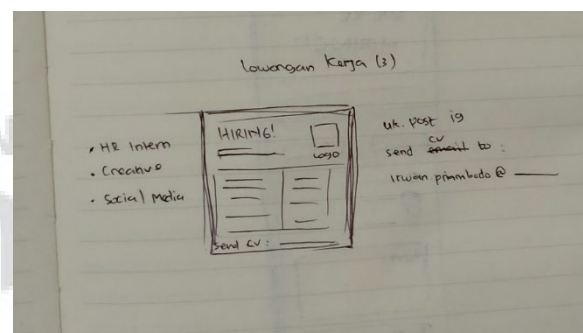 Lowongan Kerja (3)
• HR Intern
• Creative
• Social Media
HIRING!
LOGO
Send CV :
uk. post ig
send cv to :
@